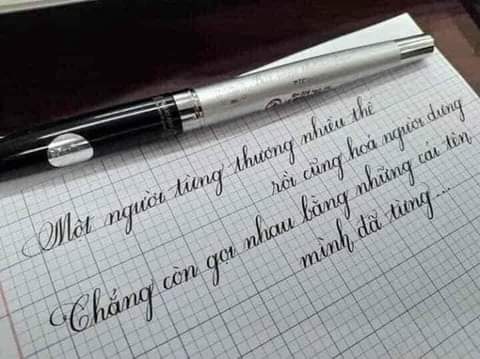 Một người từng thương nhiều thế
rồi cũng hoá người dưng
Chẳng còn gọi nhau bằng những cái tên
mình đã từng...